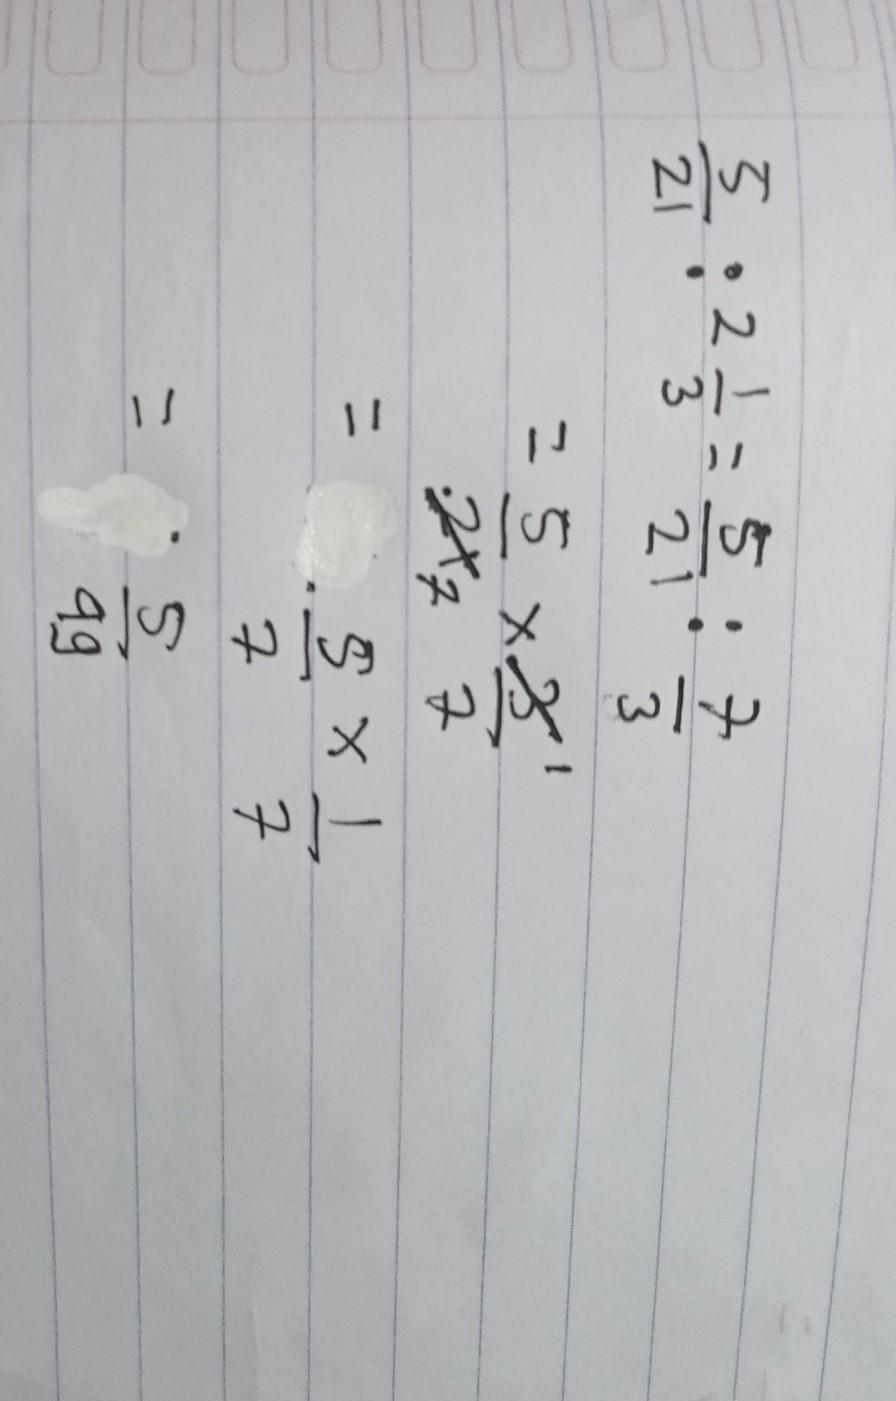 5/21 : 2 1/3 = 5/21 : 7/3
= 5/21 7 × 3 1/7
= 5/7 × 1/7
= 5/49